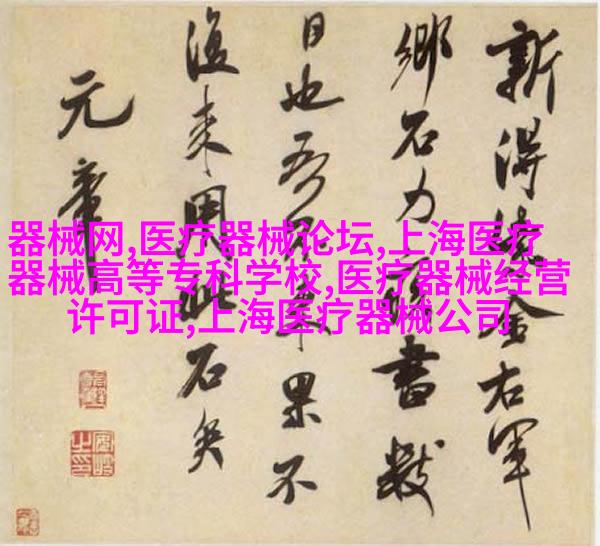 新得紫金右軍
鄉石力疾書數
日也吾不来果不
復来用此石矣
元章
器械网,医疗器械论坛,上海医疗
器械高等专科学校,医疗器械经营
许可证,上海医疗器械公司